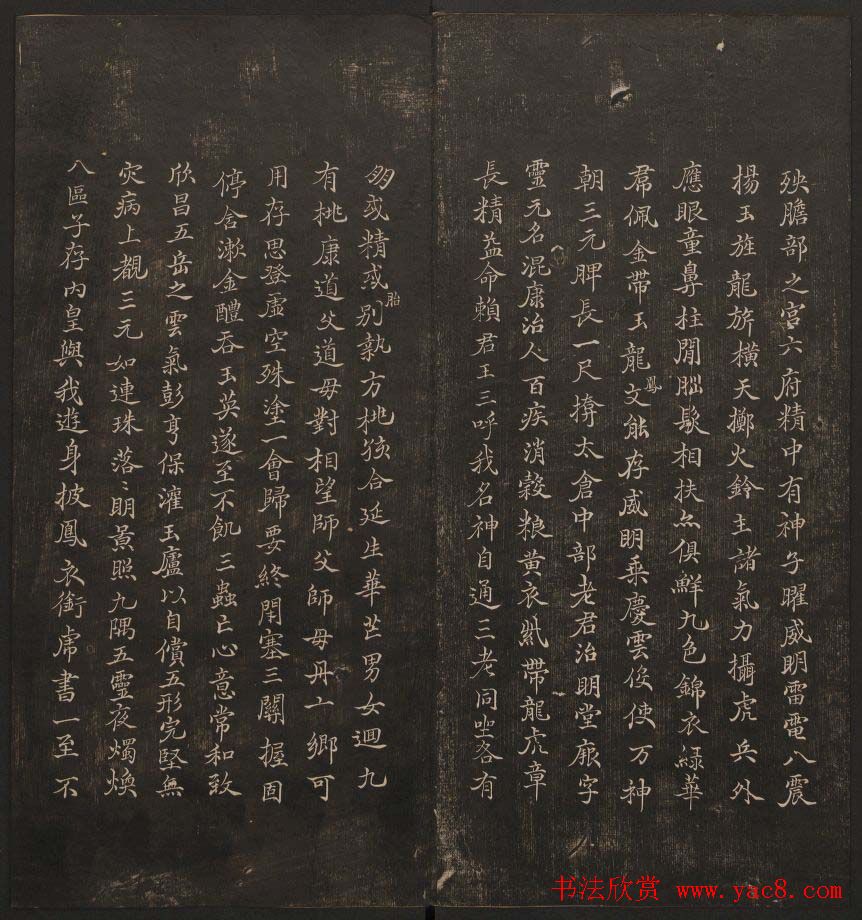 殃膽部之宮六府精中有神子曜威明雷電八震
揚玉旌龍旂橫天擲火鈴主諸氣力攝虎兵外
應眼童鼻柱間腦髮相扶亦俱鮮九色錦衣綠華
帬佩金帶玉龍文能存威明乘慶雲役使万神
鳳
朝三元脾長一尺揜太倉中部老君治明堂厥字
靈元名混康治人百疾消穀粮黄衣紫帶龍虎章
長精益命賴君王三呼我名神自通三老同坐各有
朋或精或別執方桃孩合延生華芒男女迴九
胎
有桃康道父道母對相望師父師母丹亠鄉可
用存思登虛空殊塗一會歸要終閉塞三關握固
停含漱金醴吞玉英遂至不飢三蟲亡心意常和致
欣昌五岳之雲氣彭亨保灌玉廬以自償五形完堅無
灾病上覩三元如連珠落〻明景照九隅五靈夜燭煥
八區子存內皇與我遊身披鳳衣銜虎書一至不
书法欣赏 www.yac8.com